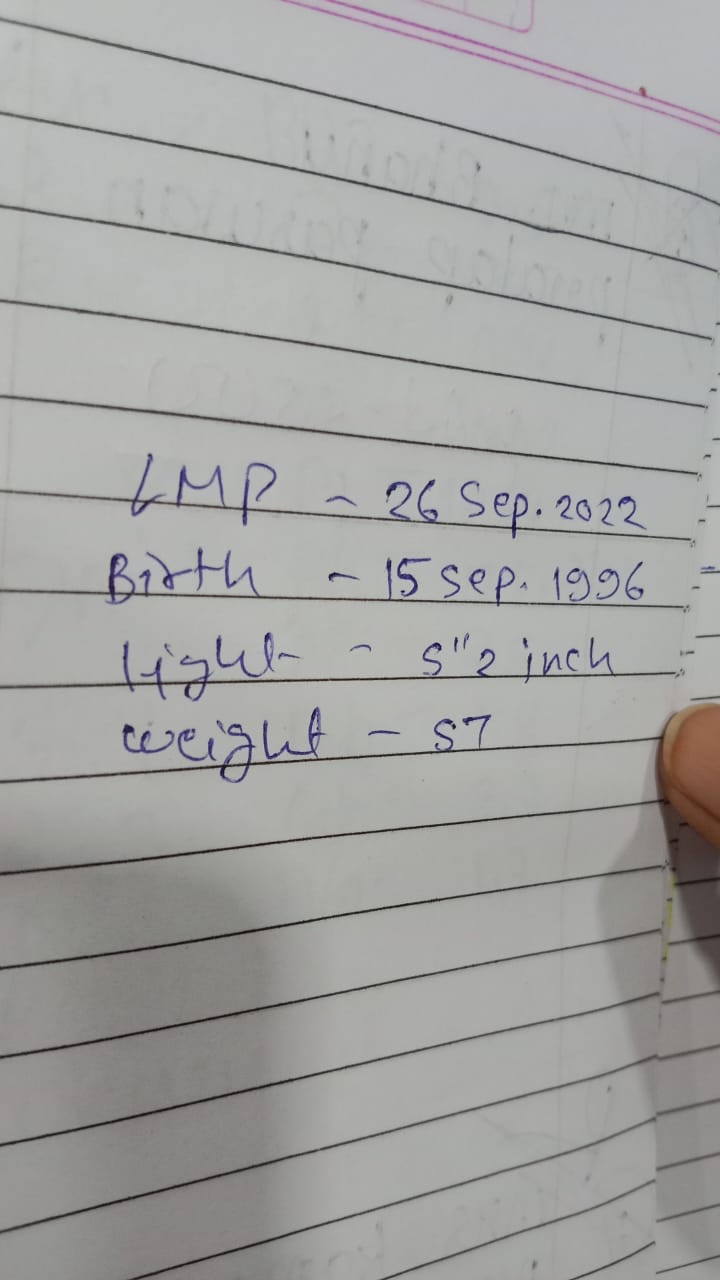 LMP - 26 Sep. 2022
Birth - 15 sep. 1996
hight - 5"2 inch
weight - 57